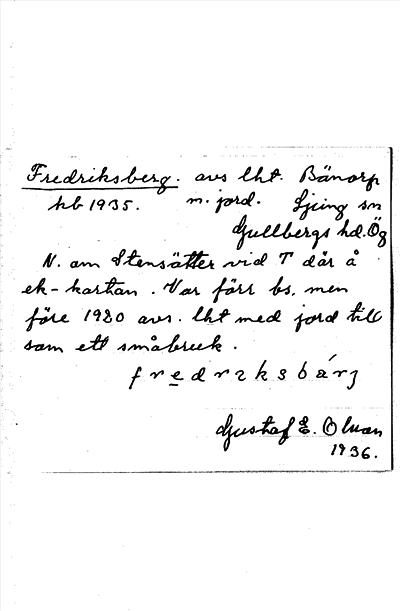 Fredriksberg. avs lht. Bänorp
kb 1935. m. jord. Ljung sn
Gullbergs hd. Ög
N. om Stensätter vid T där å
ek-kartan. Var förr bs, men
före 1920 avs. lht med jord till
som ett småbruk.
fredrıksbárj
Gustaf E. Olson
1936.